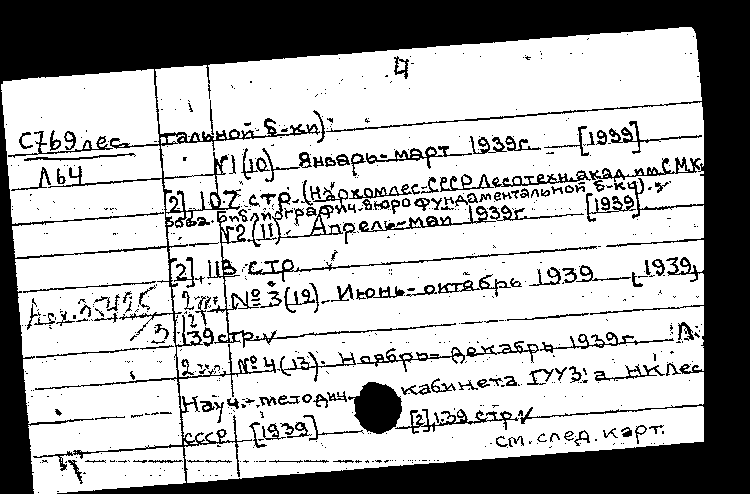 4
С769лес. тальной б-ки)
№1(10). Январь-март 1939г. [1939].
Л64
[2], 107 стр. (Наркомлес-СССР Лесотехн. акад. им. С.М.Ки
библиографич. бюро фундаментальной б-ки).
№2(11). Апрель-май 1939г. [1939].
[2], 113 стр.
Арх.35425/3
2 экз. №3(12). Июнь-октябрь 1939 [1939].
[2] 139стр.
2 экз. №4(13). Ноябрь-декабрь 1939г. Л.,
Науч.-методич. кабинета ГУУЗ'а НКЛес
СССР [1939] [2], 139 стр.
см. след. карт.